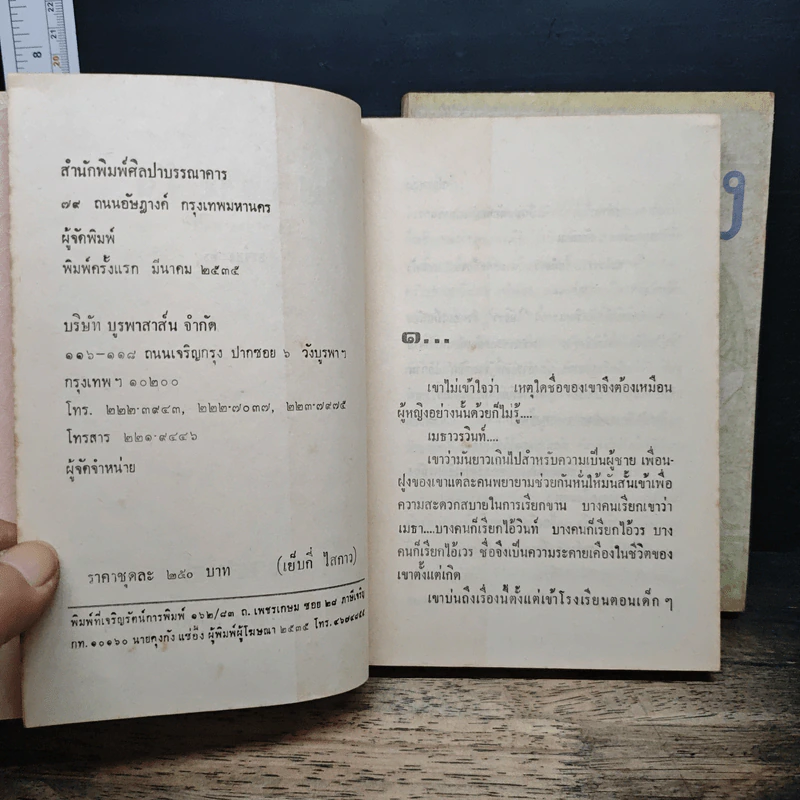 8
22
21
20
สำนักพิมพ์ศิลปาบรรณาคาร
๗๙ ถนนอัษฎางค์ กรุงเทพมหานคร
ผู้จัดพิมพ์
พิมพ์ครั้งแรก มีนาคม ๒๕๓๕
บริษัท บูรพาสาส์น จำกัด
๑๑๖-๑๑๘ ถนนเจริญกรุง ปากซอย ๖ วังบูรพาฯ
กรุงเทพฯ ๑๐๒๐๐
โทร. ๒๒๒-๓๙๔๓, ๒๒๒-๗๐๓๗, ๒๒๓-๗๙๗๕
โทรสาร ๒๒๑-๙๔๔๖
ผู้จัดจำหน่าย
ราคาชุดละ ๒๕๐ บาท (เย็บกี่ ไสกาว)
พิมพ์ที่เจริญรัตน์การพิมพ์ ๑๖๒/๘๓ ถ. เพชรเกษม ซอย ๒๘ ภาษีเจริญ
กท. ๑๐๑๖๐ นายคุงกัง แซ่อึ้ง ผู้พิมพ์ผู้โฆษณา ๒๕๓๕ โทร.
๑...
เขาไม่เข้าใจว่า เหตุใดชื่อของเขาจึงต้องเหมือน
ผู้หญิงอย่างนั้นด้วยก็ไม่รู้....
เมธาวรวินท์....
เขาว่ามันยาวเกินไปสำหรับความเป็นผู้ชาย เพื่อน-
ฝูงของเขาแต่ละคนพยายามช่วยกันหั่นให้มันสั้นเข้าเพื่อ
ความสะดวกสบายในการเรียกขาน บางคนเรียกเขาว่า
เมธา....บางคนก็เรียกไอ้วินท์ บางคนก็เรียกไอ้วร บาง
คนก็เรียกไอ้เวร ชื่อจึงเป็นความระคายเคืองในชีวิตของ
เขาตั้งแต่เกิด
เขาบ่นถึงเรื่องนี้ตั้งแต่เข้าโรงเรียนตอนเด็กๆ